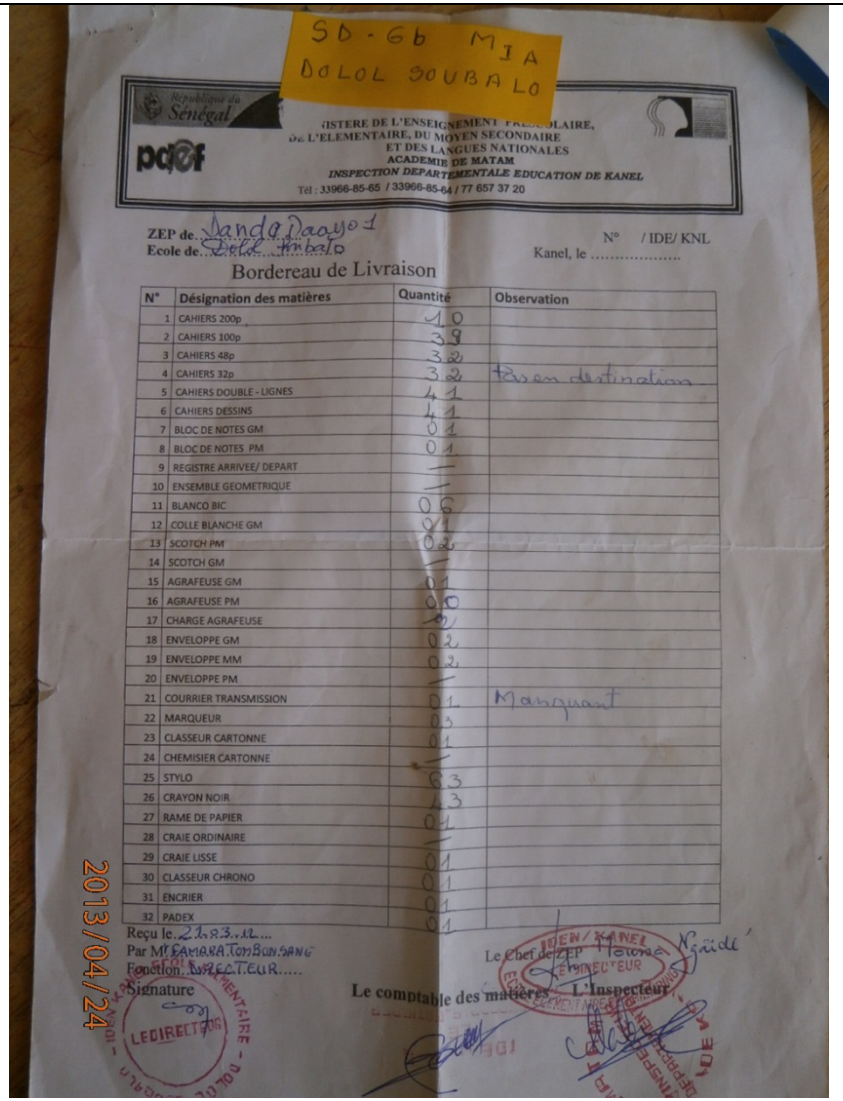 SD-Gb MIA
DOLOL SOUBALO
République du
Sénégal
pdef
ISTERE DE L'ENSEIGNEMENT PRESCOLAIRE,
DE L'ELEMENTAIRE, DU MOYEN SECONDAIRE
ET DES LANGUES NATIONALES
ACADEMIE DE MATAM
INSPECTION DEPARTEMENTALE EDUCATION DE KANEL
Tél : 33966-85-65 / 33966-85-64 / 77 657 37 20
ZEP de Danda Daayo 1
N° / IDE/ KNL
Ecole de
Kanel, le ....................
Bordereau de Livraison
N° Désignation des matières Quantité Observation
1 CAHIERS 200p 10
2 CAHIERS 100p 39
3 CAHIERS 48p 32
4 CAHIERS 32p 32 en destination
5 CAHIERS DOUBLE - LIGNES 41
6 CAHIERS DESSINS 41
7 BLOC DE NOTES GM 01
8 BLOC DE NOTES PM 01
9 REGISTRE ARRIVEE/ DEPART —
10 ENSEMBLE GEOMETRIQUE —
11 BLANCO BIC 06
12 COLLE BLANCHE GM 01
13 SCOTCH PM 02
14 SCOTCH GM —
15 AGRAFEUSE GM 01
16 AGRAFEUSE PM 00
17 CHARGE AGRAFEUSE
18 ENVELOPPE GM 02
19 ENVELOPPE MM 02
20 ENVELOPPE PM —
21 COURRIER TRANSMISSION 01 Manquant
22 MARQUEUR 03
23 CLASSEUR CARTONNE 01
24 CHEMISIER CARTONNE —
25 STYLO 63
26 CRAYON NOIR 43
27 RAME DE PAPIER 01
28 CRAIE ORDINAIRE —
29 CRAIE LISSE 01
30 CLASSEUR CHRONO 01
31 ENCRIER 01
32 PADEX 01
Reçu le 21.03.12
Par Mr CAMARA TOMBONSANG
Le Chef de ZEP Moussa Ngaïdé
Fonction DIRECTEUR
Signature
Le comptable des matières L'Inspecteur
IDEN / KANEL
LE DIRECTEUR
LE DIRECTEUR
2013/04/24